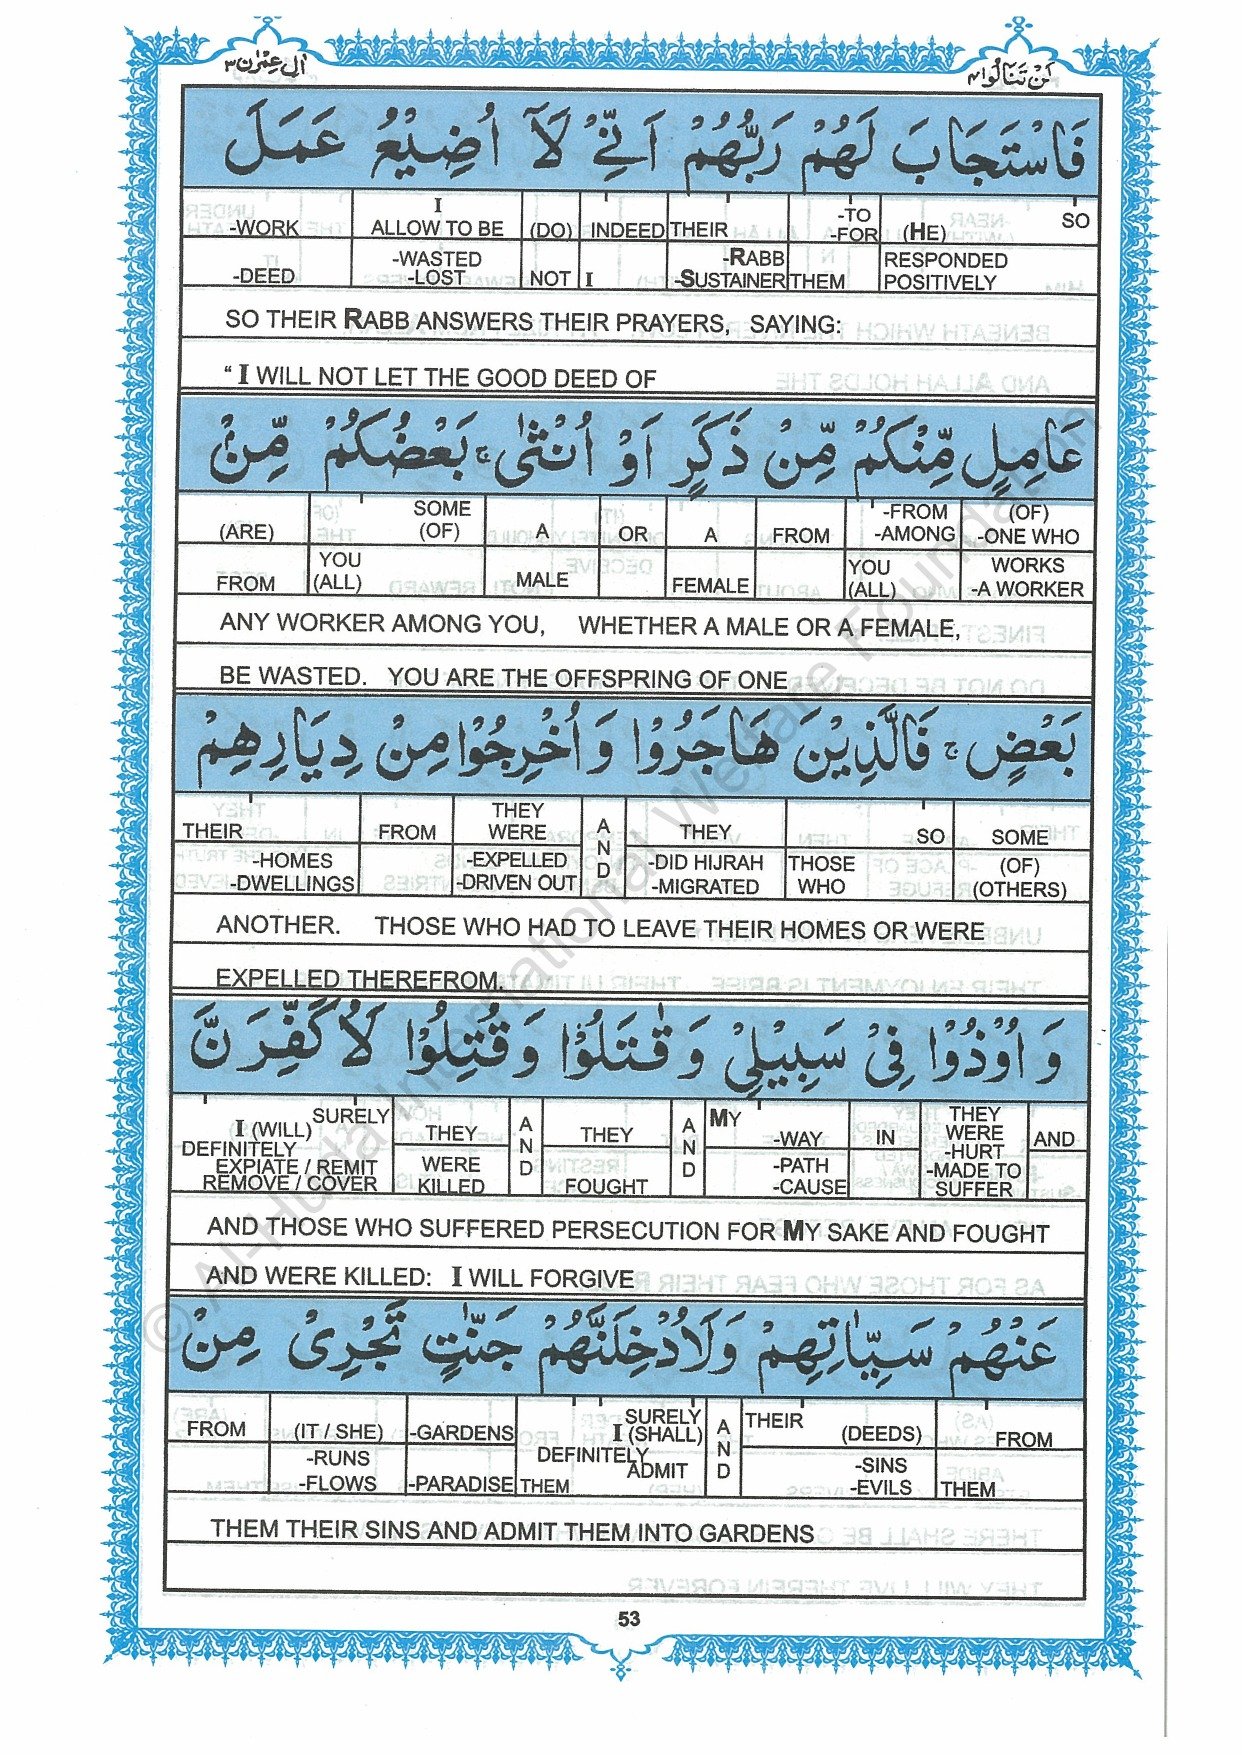 اٰل عِمْرٰن ٣
لَنْ تَنَالُوا ٤
فَاسْتَجَابَ لَهُمْ رَبُّهُمْ اَنِّىْ لَآ اُضِيْعُ عَمَلَ
-WORK I ALLOW TO BE (DO) INDEED THEIR -TO -FOR (HE) SO
-DEED -WASTED -LOST NOT I -RABB -SUSTAINER THEM RESPONDED POSITIVELY
SO THEIR RABB ANSWERS THEIR PRAYERS, SAYING:
“ I WILL NOT LET THE GOOD DEED OF
عَامِلٍ مِّنْكُمْ مِّنْ ذَكَرٍ اَوْ اُنْثٰى ۚ بَعْضُكُمْ مِّنْۢ
(ARE) SOME (OF) A OR A FROM -FROM -AMONG (OF) -ONE WHO
FROM YOU (ALL) MALE FEMALE YOU (ALL) WORKS -A WORKER
ANY WORKER AMONG YOU, WHETHER A MALE OR A FEMALE,
BE WASTED. YOU ARE THE OFFSPRING OF ONE
بَعْضٍ ۚ فَالَّذِيْنَ هَاجَرُوْا وَاُخْرِجُوْا مِنْ دِيَارِهِمْ
THEIR FROM THEY WERE AND THEY SO SOME
-HOMES -DWELLINGS -EXPELLED -DRIVEN OUT -DID HIJRAH -MIGRATED THOSE WHO (OF) (OTHERS)
ANOTHER. THOSE WHO HAD TO LEAVE THEIR HOMES OR WERE
EXPELLED THEREFROM.
وَاُوْذُوْا فِىْ سَبِيْلِىْ وَقٰتَلُوْا وَقُتِلُوْا لَاُكَفِّرَنَّ
SURELY I (WILL) DEFINITELY THEY AND THEY AND MY -WAY IN THEY WERE -HURT AND
EXPIATE / REMIT REMOVE / COVER WERE KILLED FOUGHT -PATH -CAUSE -MADE TO SUFFER
AND THOSE WHO SUFFERED PERSECUTION FOR MY SAKE AND FOUGHT
AND WERE KILLED: I WILL FORGIVE
عَنْهُمْ سَيِّاٰتِهِمْ وَلَاُدْخِلَنَّهُمْ جَنّٰتٍ تَجْرِىْ مِنْ
FROM (IT / SHE) -GARDENS SURELY I (SHALL) DEFINITELY AND THEIR (DEEDS) FROM
-RUNS -FLOWS -PARADISE THEM ADMIT -SINS -EVILS THEM
THEM THEIR SINS AND ADMIT THEM INTO GARDENS
53
© Al-Huda International Welfare Foundation